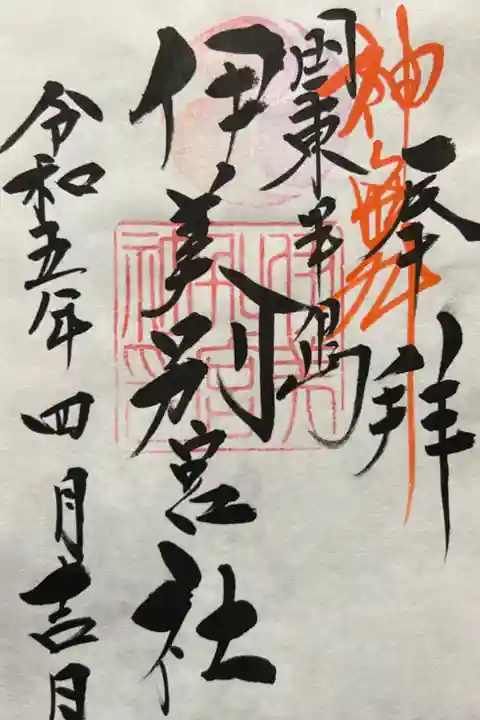 奉拝
神舞
国東半島
伊美別宮社
令和五年四月吉日